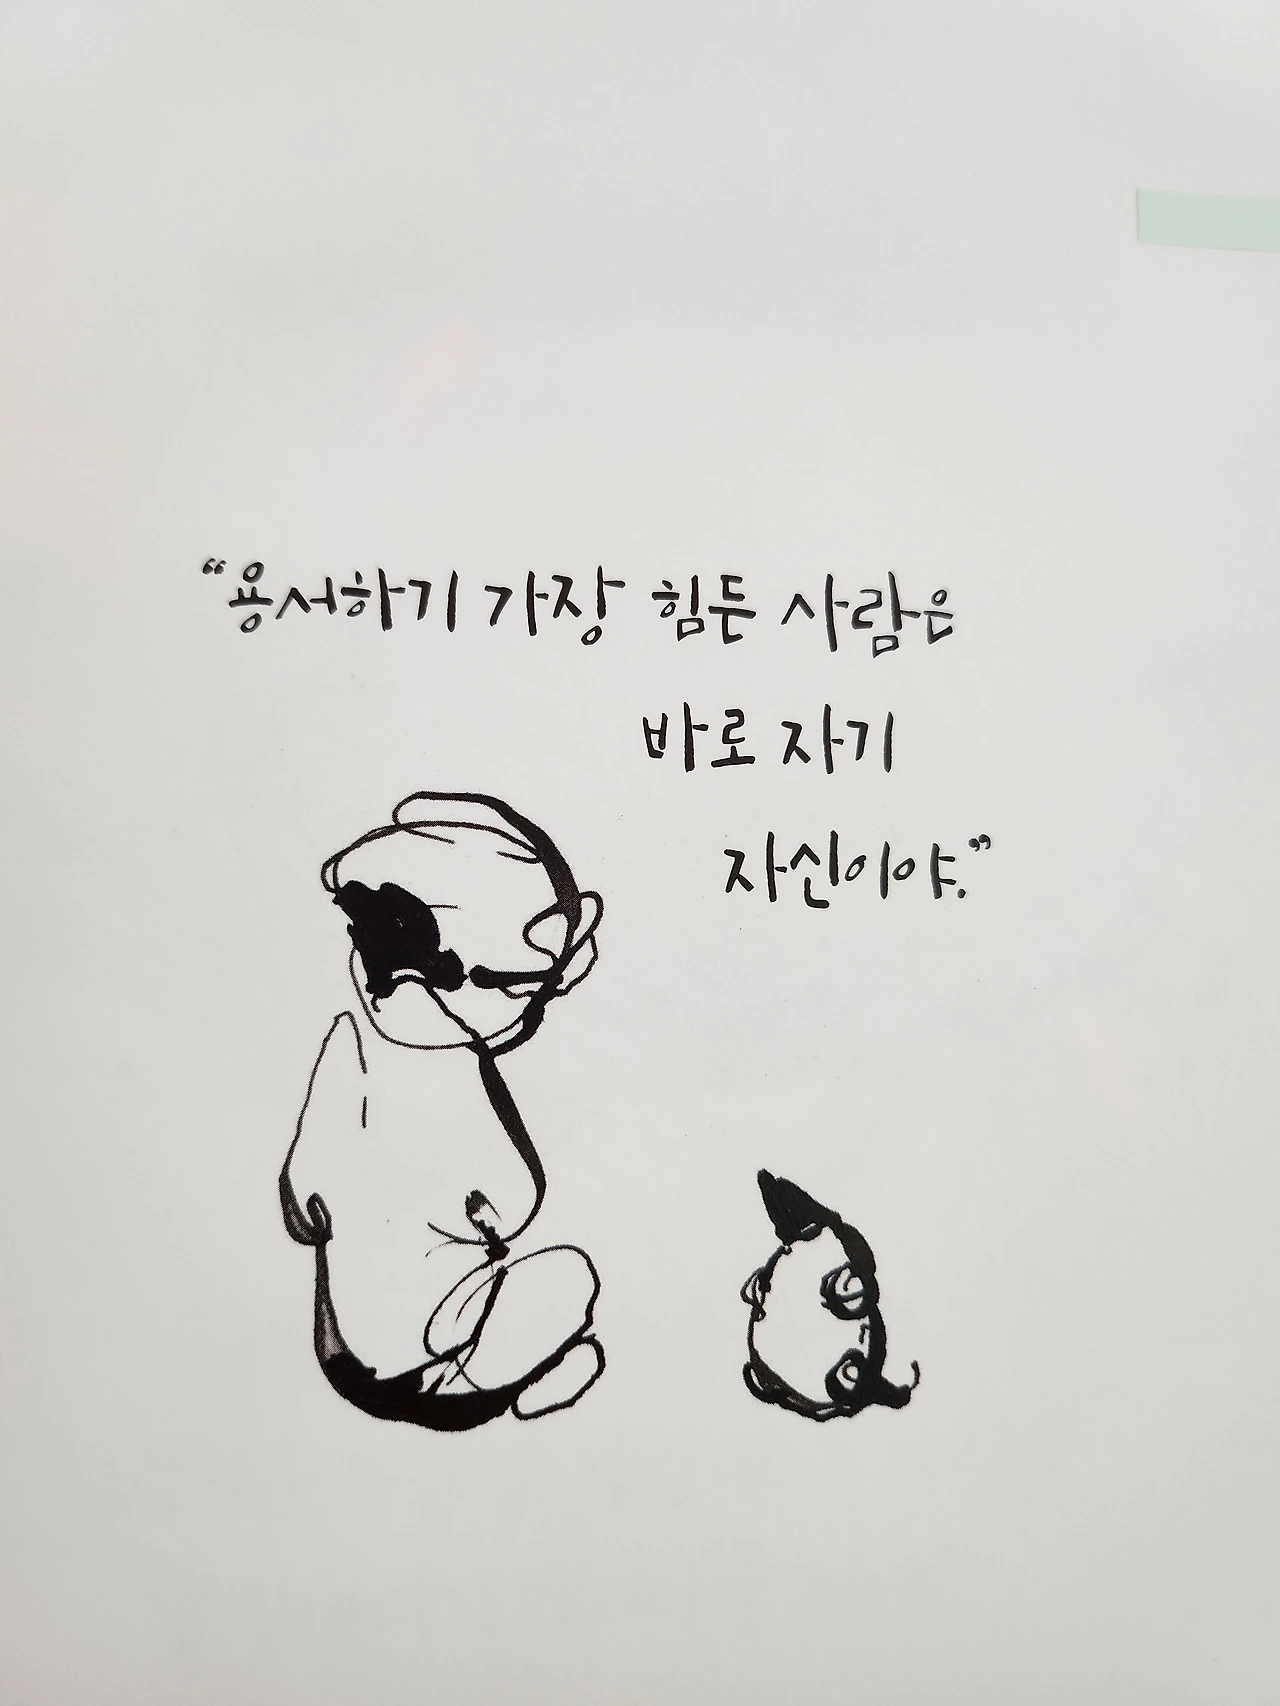 “용서하기 가장 힘든 사람은
바로 자기
자신이야.”